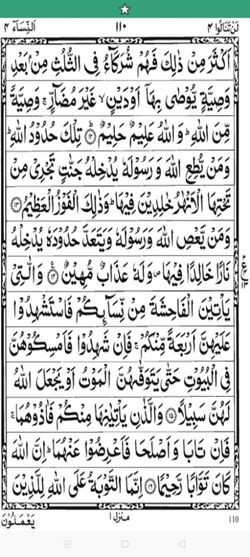 لن تنالوا ٤ ١١٠ النسآء ٤
اَكْثَرَ مِنْ ذٰلِكَ فَهُمْ شُرَكَآءُ فِى الثُّلُثِ مِنْۢ بَعْدِ
وَصِيَّةٍ يُّوْصٰى بِهَاۤ اَوْ دَيْنٍ ۙ غَيْرَ مُضَآرٍّ ۚ وَصِيَّةً
مِّنَ اللّٰهِ ؕ وَاللّٰهُ عَلِيْمٌ حَلِيْمٌ ۝۱۲ تِلْكَ حُدُوْدُ اللّٰهِ ؕ
وَمَنْ يُّطِعِ اللّٰهَ وَرَسُوْلَهٗ يُدْخِلْهُ جَنّٰتٍ تَجْرِىْ مِنْ
تَحْتِهَا الْاَنْهٰرُ خٰلِدِيْنَ فِيْهَا ؕ وَذٰلِكَ الْفَوْزُ الْعَظِيْمُ ۝۱۳
وَمَنْ يَّعْصِ اللّٰهَ وَرَسُوْلَهٗ وَيَتَعَدَّ حُدُوْدَهٗ يُدْخِلْهُ
نَارًا خَالِدًا فِيْهَا ۪ وَلَهٗ عَذَابٌ مُّهِيْنٌ ۝۱۴ وَالّٰتِىْ
يَاْتِيْنَ الْفَاحِشَةَ مِنْ نِّسَآئِكُمْ فَاسْتَشْهِدُوْا
عَلَيْهِنَّ اَرْبَعَةً مِّنْكُمْ ۚ فَاِنْ شَهِدُوْا فَاَمْسِكُوْهُنَّ
فِى الْبُيُوْتِ حَتّٰى يَتَوَفّٰهُنَّ الْمَوْتُ اَوْ يَجْعَلَ اللّٰهُ
لَهُنَّ سَبِيْلًا ۝۱۵ وَالَّذٰنِ يَاْتِيٰنِهَا مِنْكُمْ فَاٰذُوْهُمَا ۚ
فَاِنْ تَابَا وَاَصْلَحَا فَاَعْرِضُوْا عَنْهُمَا ؕ اِنَّ اللّٰهَ
كَانَ تَوَّابًا رَّحِيْمًا ۝۱۶ اِنَّمَا التَّوْبَةُ عَلَى اللّٰهِ لِلَّذِيْنَ
يَعْمَلُوْنَ منزل ۱ 110